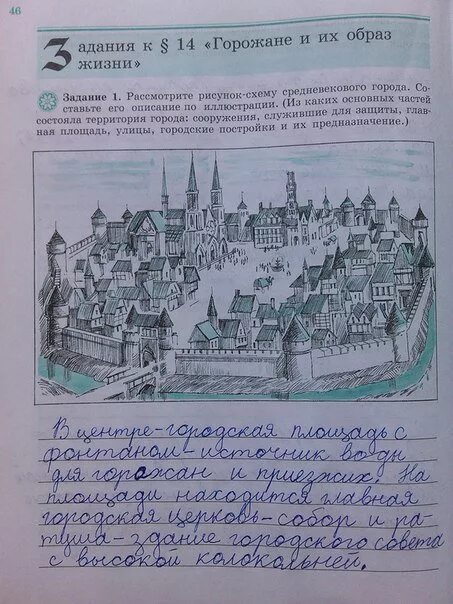 46
Задания к § 14 «Горожане и их образ
жизни»
Задание 1. Рассмотрите рисунок-схему средневекового города. Со-
ставьте его описание по иллюстрации. (Из каких основных частей
состояла территория города: сооружения, служившие для защиты, глав-
ная площадь, улицы, городские постройки и их предназначение.)
В центре-городская площадь с
фонтаном-источник воды
для горожан и приезжих. На
площади находится главная
городская церковь-собор и ра-
туша-здание городского совета
с высокой колокольней.